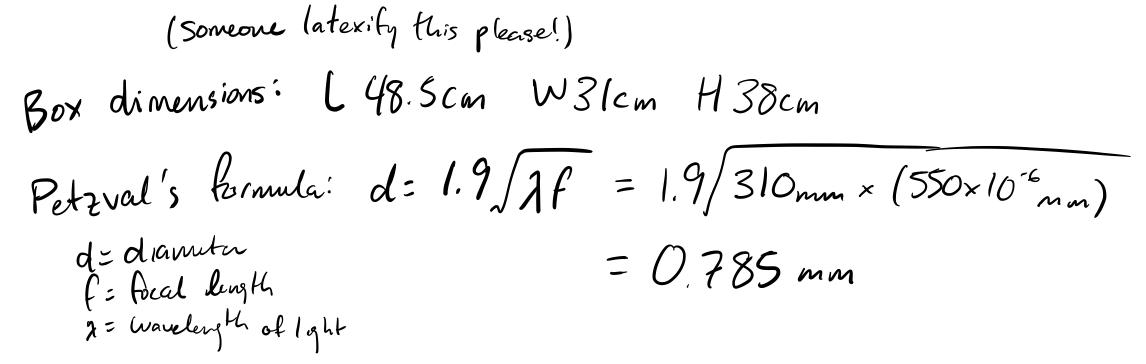 (Someone latexify this please!)
Box dimensions: L 48.5cm W31cm H 38cm
Petzval's formula: d= 1.9√λf = 1.9√310mm × (550×10⁻⁶ mm)
= 0.785 mm
d= diameter
f= focal length
λ= wavelength of light